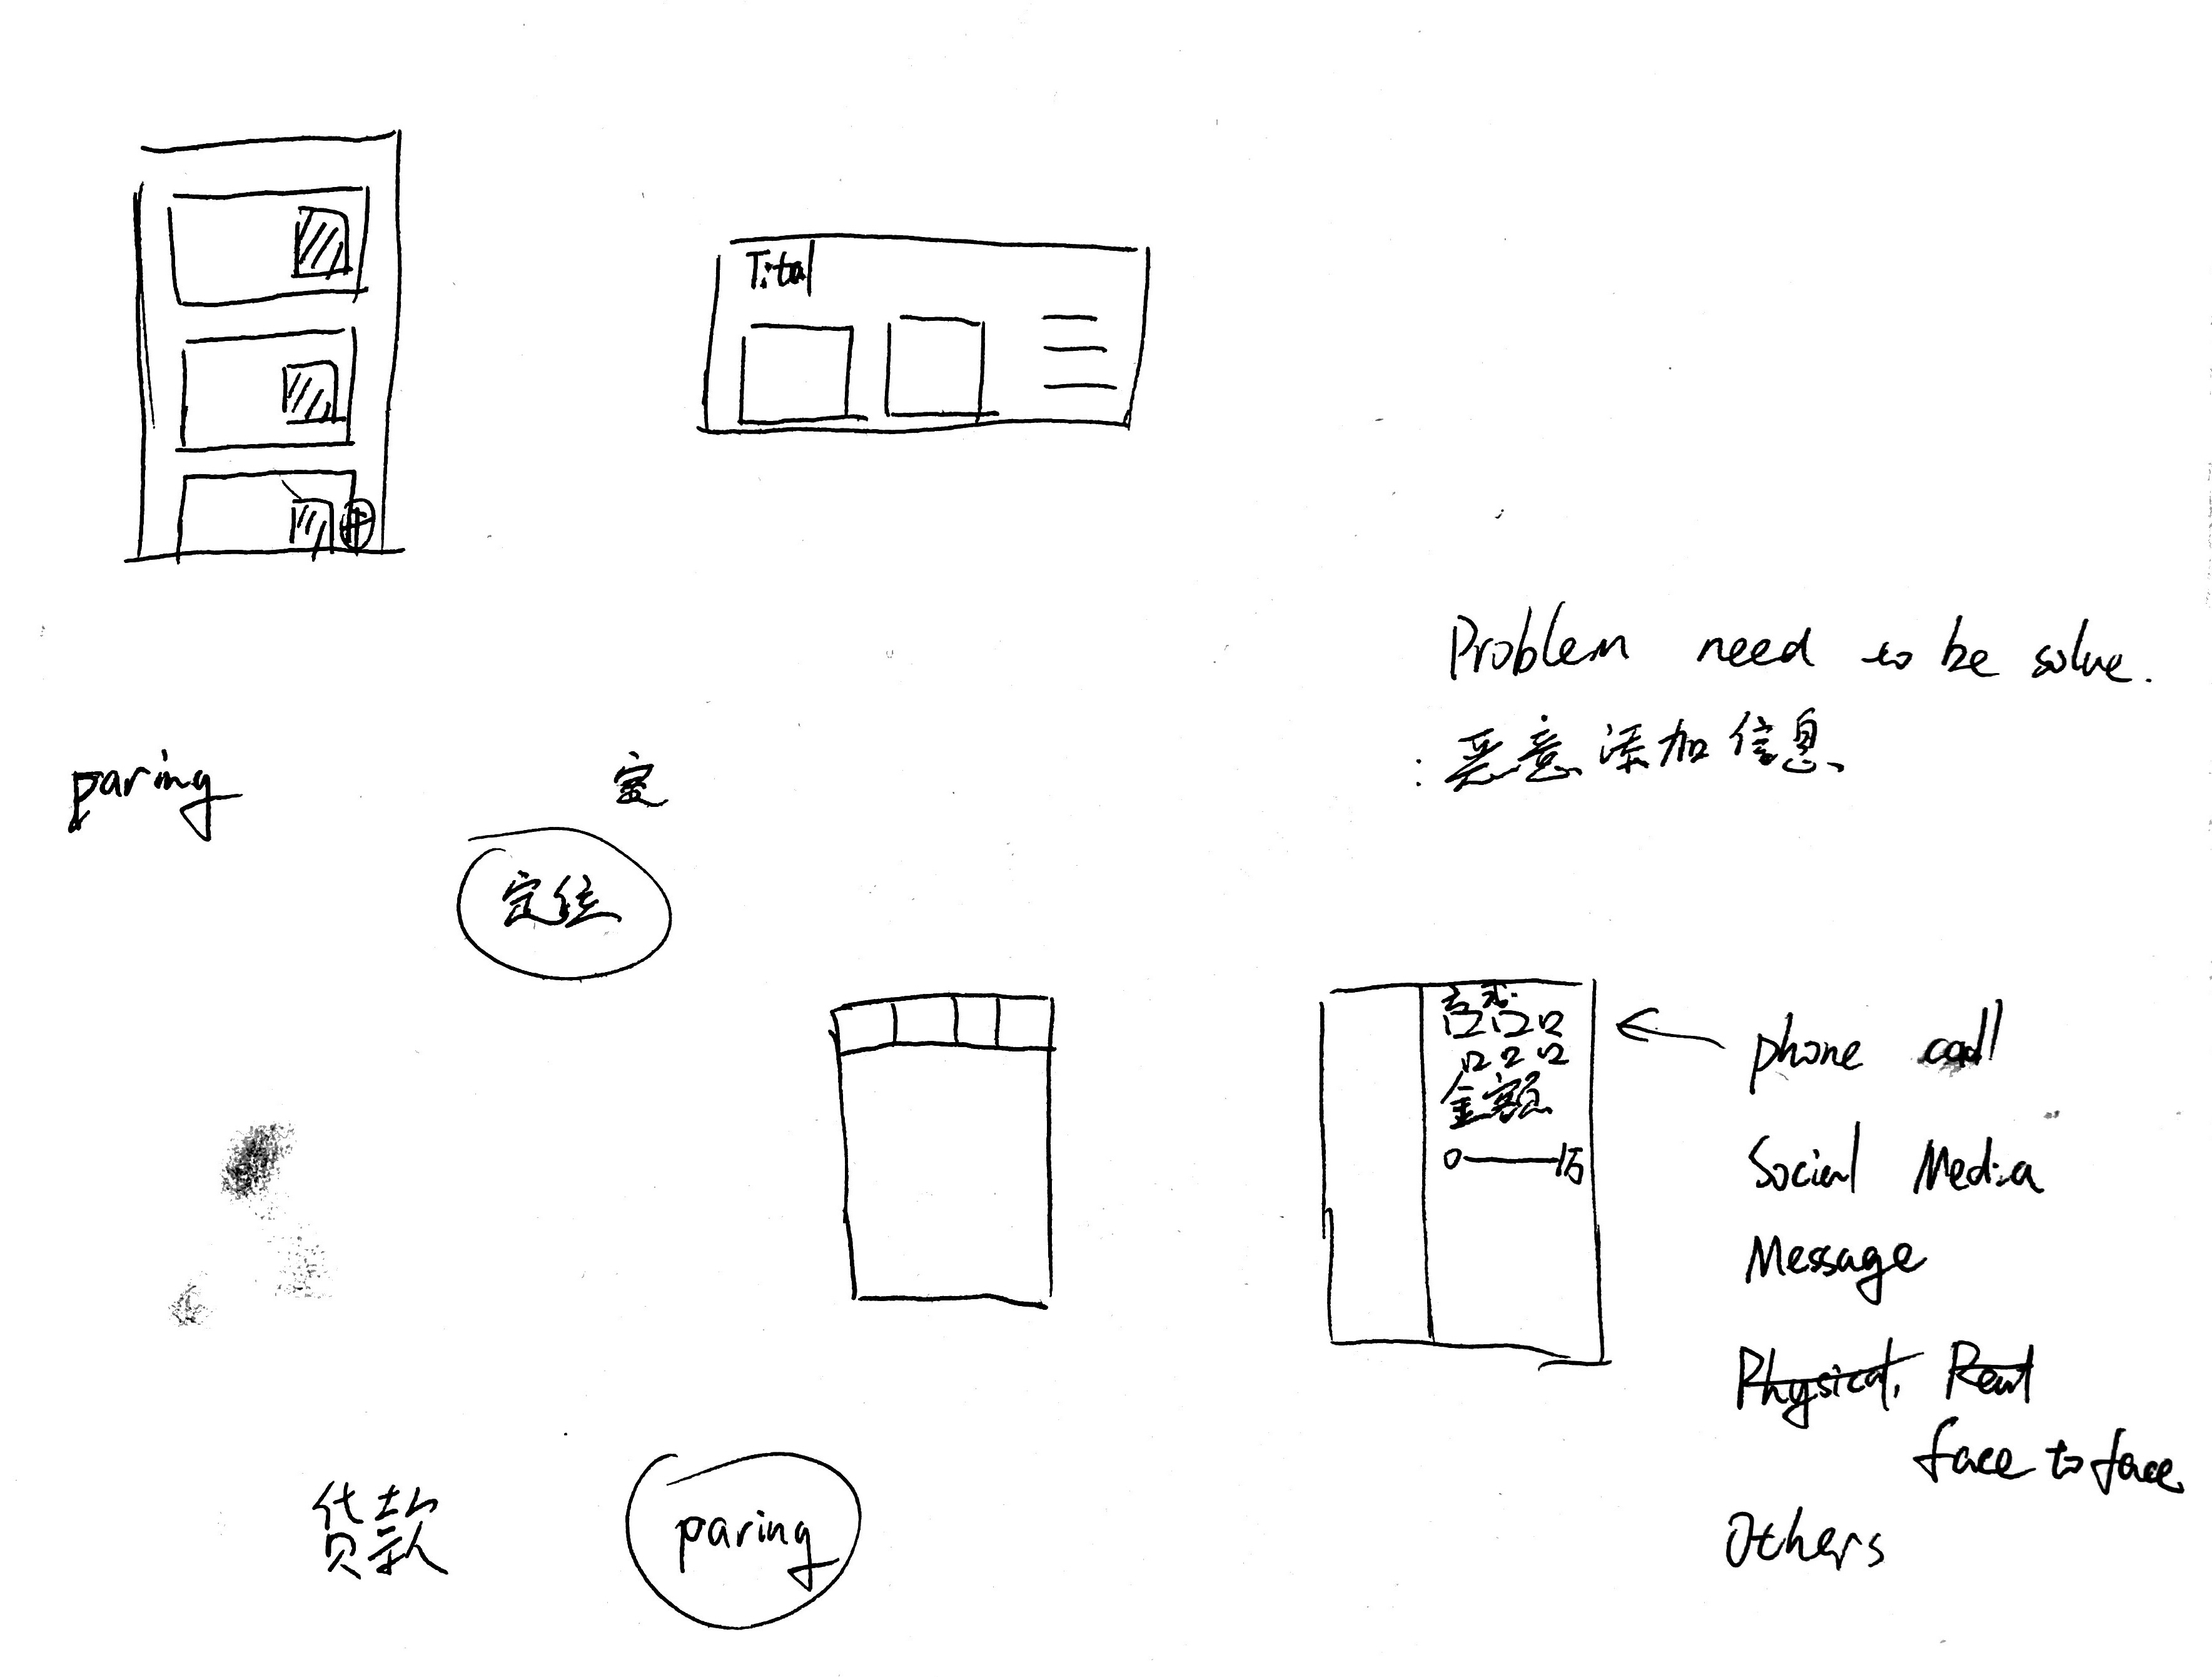 Tital
Problem need to be solve.
: 恶意添加信息、
paring
定
定位
金额
0 1万
phone call
Social Media
Message
Physical, Real
face to face
Others
贷款
paring